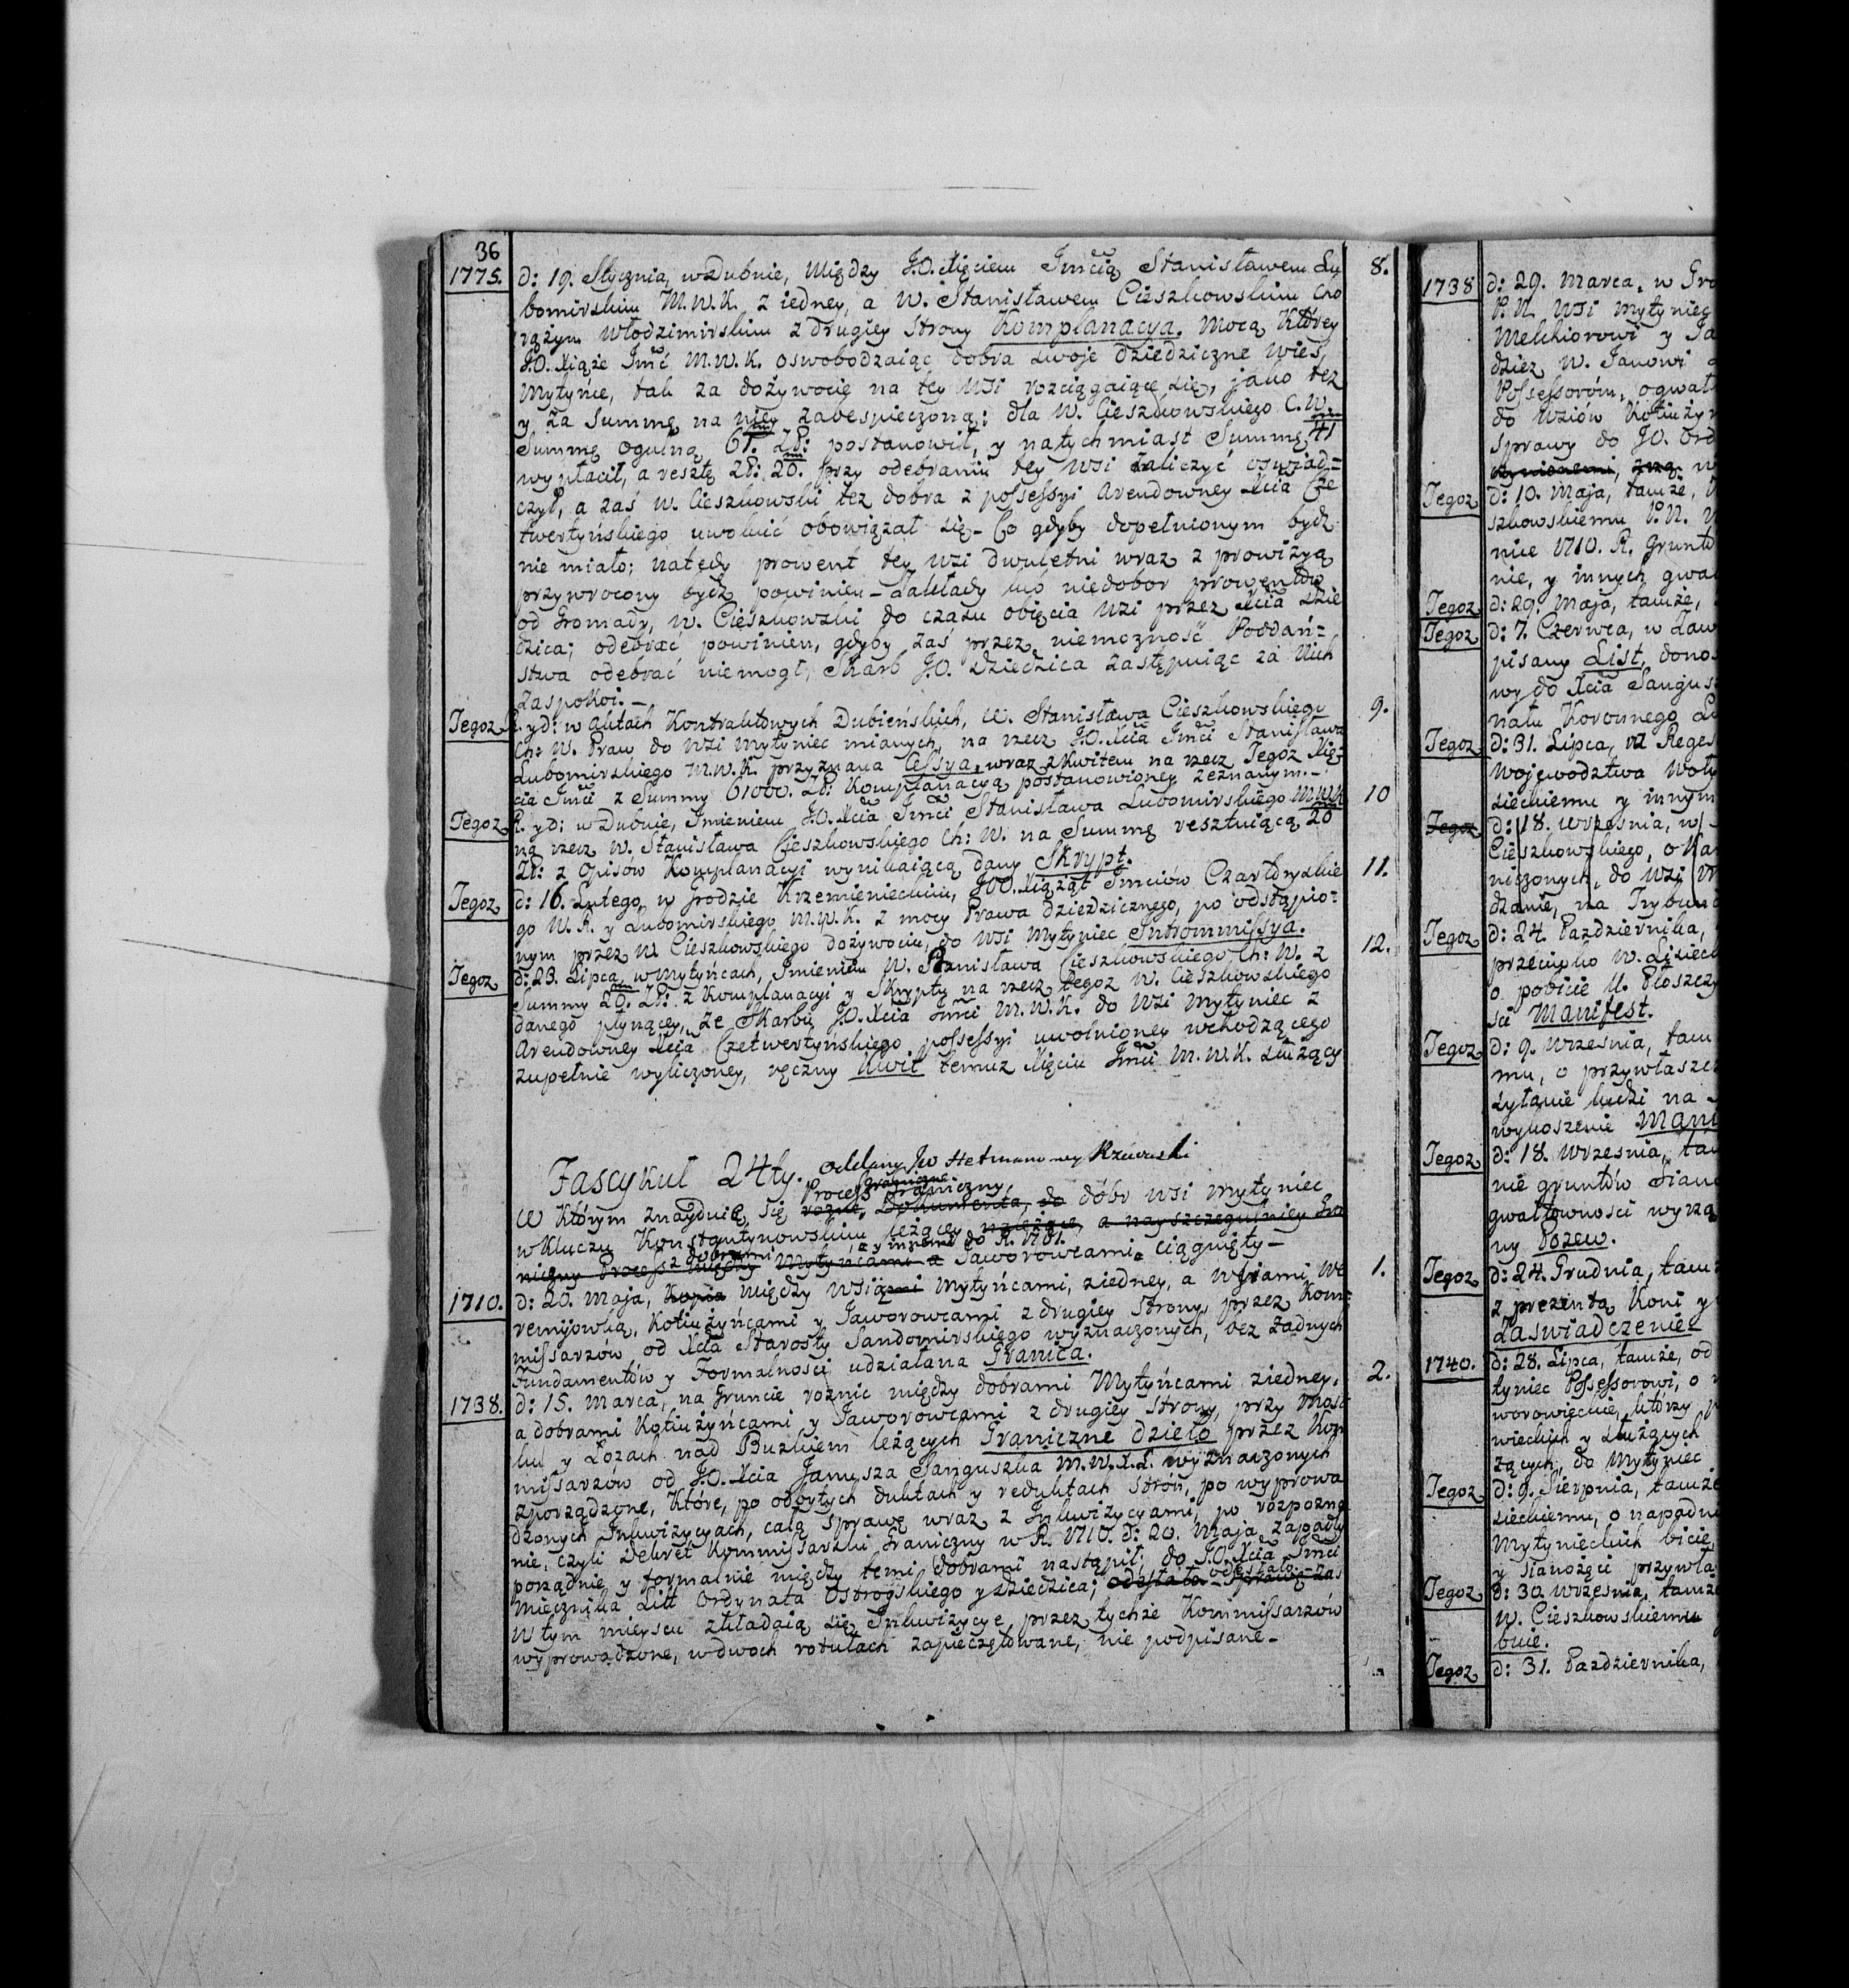 36
1775. d: 19. Stycznia, w Dubnie, Między J.O. Xięciem Jmćią Stanisławem Lu 8.
bomirskim M.W.K. z iedney, a W. Stanisławem Cieszkowskim Cho
rążym Włodzimirskim z drugiey strony Komplanacya. Mocą Którey
J.O. Xiąże Jmć M.W.K. oswobodzaiąc dobra swoje dziedziczne wieś
Mytyńce, tak za dożywocie na tey wsi rozciągaiące się, jako też
y za Summę na niey zabespieczoną: dla W. Cieszkowskiego C.W.
Summę ogulną 61. m Zł: postanowił, y natychmiast Summę 41 m
wypłacił, a resztę Zł: 20. m przy odebraniu tey wsi zaliczyć oswiad=
czył, a zaś W. Cieszkowski też dobra z possessyi Arendowney Xcia Cze
twertyńskiego uwolnić obowiązał się_ Co gdyby dopełnionym bydź
nie miało; natędy prowent tey wsi dwuletni wraz z prowizyą
przywrocony bydź powinien_ Zakłady lub niedobor prowentów
od Gromady, W. Cieszkowski do czasu obięcia wsi przez Xcia Dzie
dzica; odebrać powinien, gdyby zaś przez niemozność Poddań=
stwa odebrać niemogł, Skarb J.O. Dziedzica zastępuiąc za Nich
zaspokoi._
Tegoż R. y d: w Aktach Kontraktowych Dubieńskich, W. Stanisława Cieszkowskiego 9.
Ch: W. Praw do wsi Mytyniec mianych, na rzecz J.O. Xcia Jmći Stanisława
Lubomirskiego M.W.K. przyznana Cessya, wraz z kwitem na rzecz Tegoż Xię=
cia Jmći z Summy 61000. Zł: Komplanacyą postanowioney zeznanym._
Tegoż R. y d: w Dubnie, Jmieniem J.O. Xcia Jmći Stanisława Lubomirskiego M.W.K. 10
na rzecz W. Stanisława Cieszkowskiego Ch: W. na Summę resztuiącą 20 m
Zł: z Opisów Komplanacyi wynikaiącą dany Skrypt.
Tegoż d: 16. Lutego, w Grodzie Krzemienieckim, JOO. Xiążąt Jmciów Czartoryskie 11.
go W.R. y Lubomirskiego M.W.K. z mocy Prawa dziedzicznego, po odstąpio=
nym przez W. Cieszkowskiego dożywociu, do wsi Mytyniec Intromissya.
Tegoż d: 23. Lipca, w Mytyńcach, Jmieniem W. Stanisława Cieszkowskiego Ch: W. z 12.
Summy 20. m Zł: z Komplanacyi y Skryptu na rzecz tegoż W. Cieszkowskiego
danego płynącey, ze Skarbu J.O. Xcia Jmći M.W.K. do wsi Mytyniec z
Arendowney Xcia Czetwertyńskiego possessyi uwolnioney wchodzącego
zupełnie wyliczoney, ręczny Kwit temuż Xięciu Jmći M.W.K. służący
Fascykuł 24ty. oddany Jw Hetmanowey Rzewuski
Process graniczny
W Którym znayduie się rozne, Dokumenta, do dóbr wsi Mytyniec
w Kluczu Konstantynowskim leżącey należące, a nayszczegulniey Gra
z dobrami a y innemi do R. 1781.
niczny Process między Mytyńcami a Jaworowcami ciągnięty_
1710. d: 20. Maja, Kopia między wsiami Mytyńcami, ziedney, a wsiami We 1.
remijowką, Kotiużyńcami y Jaworowcami z drugiey strony, przez Kom=
missarzów od Xcia Starosty Sandomirskiego wyznaczonych, bez żadnych
Fundamentów y Formalnosci udziałana Granica.
1738. d: 15. Marca, na Gruncie roznic między dobrami Mytyńcami ziedney, 2.
a dobrami Kotiużyńcami y Jaworowcami z drugiey strony, przy Most
ku y Łozach nad Buzkiem leżących Graniczne dzieło przez Kom
missarzów od J.O. Xcia Janusza Sanguszka M.W.X.L. wyznaczonych
zporządzone, Które, po odbytych duktach y reduktach stron, po wyprowa
dzonych Inkwizycyach, całą sprawę wraz z Inkwizycyami, po rozpozna
nie, czyli Dekret Kommissarski Graniczny w R. 1710. d: 20. Maja zapadły
porządnie y formalnie między temi dobrami nastąpił; do J.O. Xcia Jmći
Miecznika Litt Ordynata Ostrogskiego y Dziedzica; odesłało
W tym mieyscu zkładaią się Inkwizycye przez tychże Kommissarzów
wyprowadzone, w dwoch rotułach zapieczętowane, nie podpisane_
1738 d: 29. Marca, w Gro
P.N. wsi Mytyniec
Melchiorowi y Ja
dzież W. Janowi
Possessorów, o gwałt
do wsiów Kotiuży
sprawy do J.O. Ord
Tegoż d: 10. Maja, tamże,
szkowskiemu P.N.
nice 1710. R. Grunt
nie, y innych gwa
Tegoż d: 29. Maja, tamże,
Tegoż d: 7. Czerwca, w Ław
pisany List, dono
wy do Xcia Sangus
nału Koronnego Lu
Tegoż d: 31. Lipca, z Reges
Województwa Woły
sieckiemu y innym
Tegoż d: 18. Września, w
Cieszkowskiego, o
niczonych, do wsi
dzanie, na Trybun
Tegoż d: 24. Pazdziernika,
przeciwko W. Lisieck
o pobicie U. Płoszczy
sci Manifest.
Tegoż d: 9. Września, tam
mu, o przywłaszcz
syłanie ludzi na
wykoszenie Mani
Tegoż d: 18. Września, tam
nie gruntów Siano
gwałtowności wyrzą
ny Pozew.
Tegoż d: 24. Grudnia, tam
z prezentą Koni y
Zaswiadczenie
1740. d: 28. Lipca, tamże, od
tyniec Possessorowi, o
worowieckie, którzy
wieckich y służących
żących, do Mytyniec
Tegoż d: 9. Sierpnia, tamże
sieckiemu, o napadn
Mytynieckich bicie,
y sianożęci przywła
Tegoż d: 30. Września, tamże
W. Cieszkowskiemu
bcie.
Tegoż d: 31. Pazdziernika,